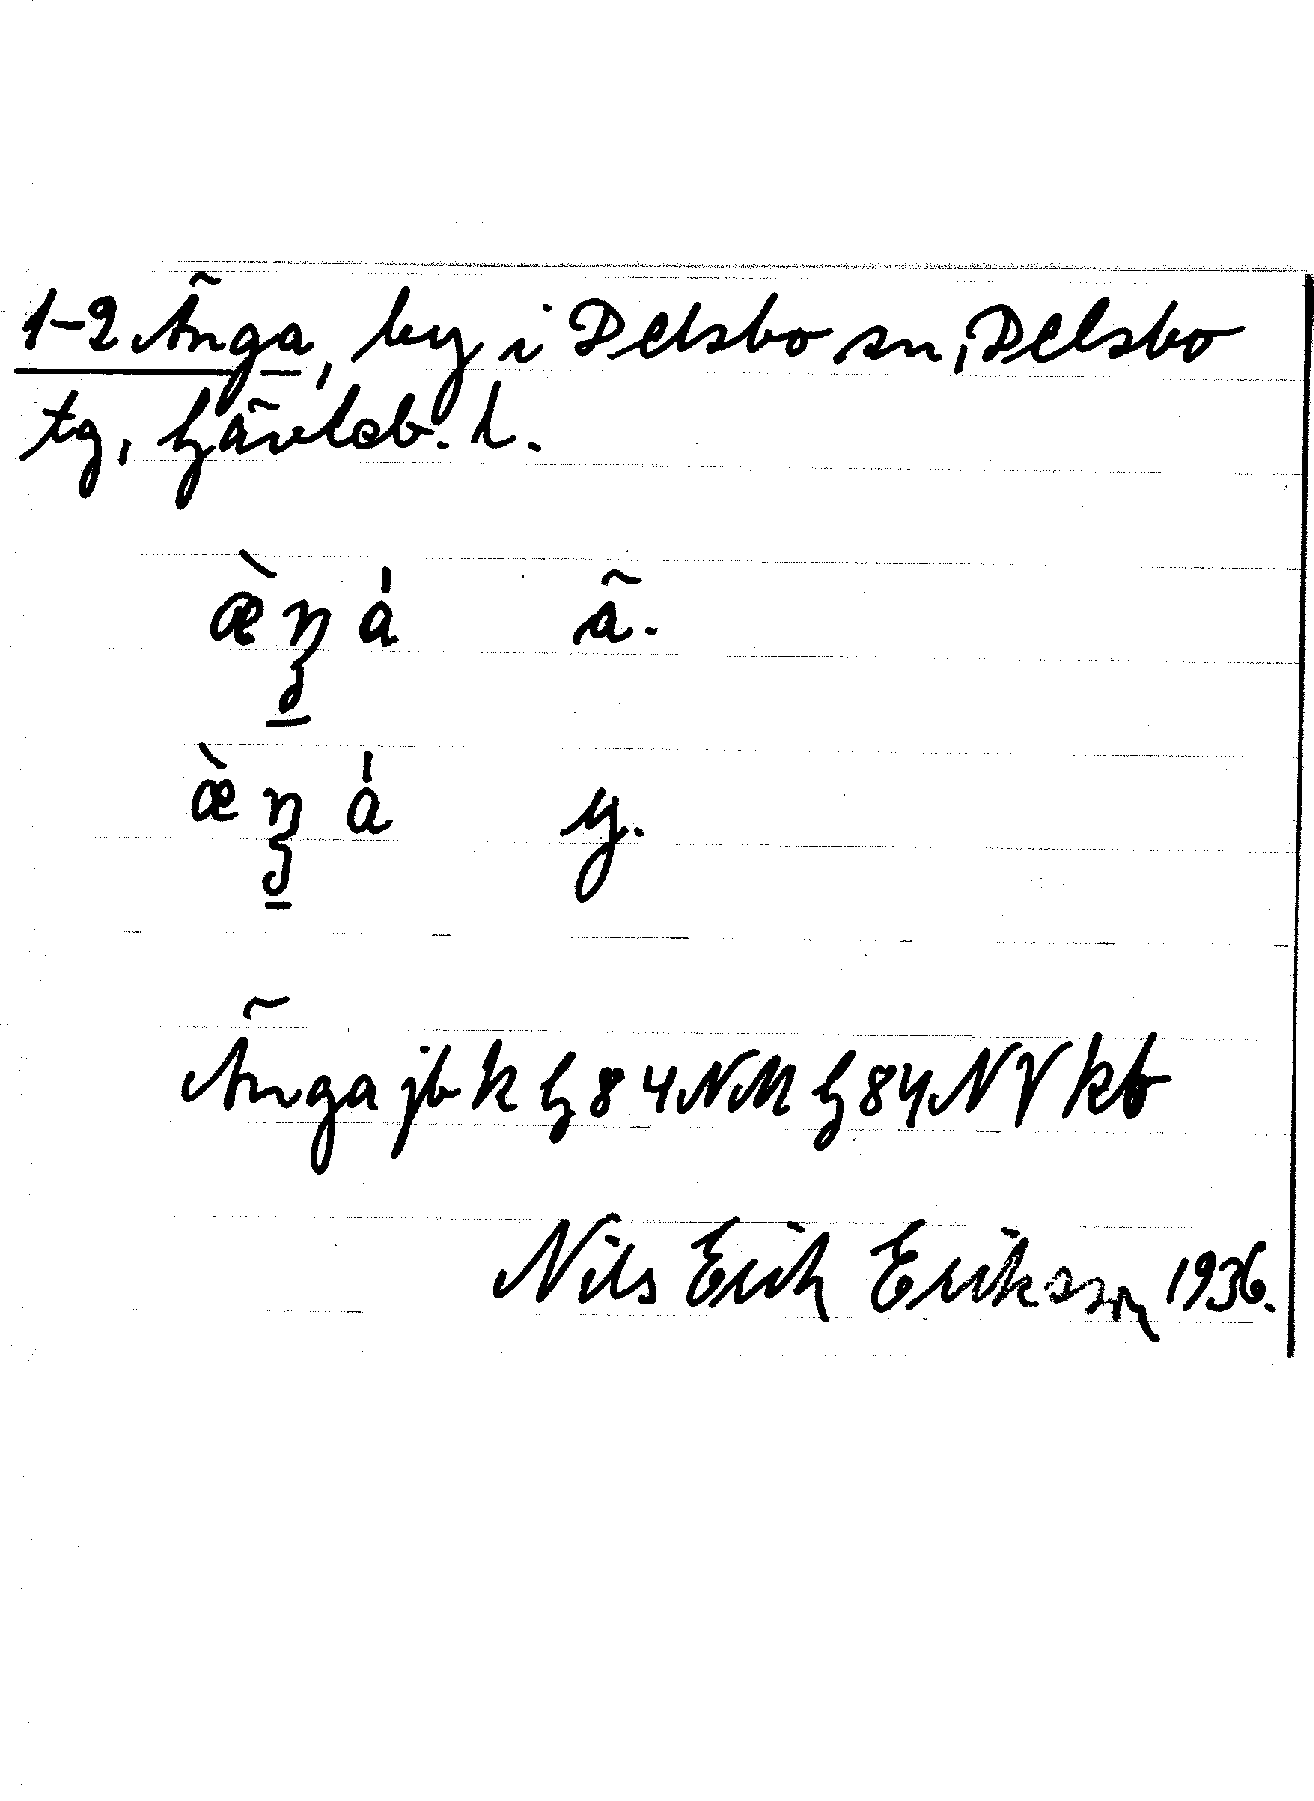 1-2 Änga, by i Delsbo sn, Delsbo
tg, Gävleb. l.
æ̀ŋá ä.
æ̀ŋá y.
Änga jbk h 84 NM h 84 NV kb
Nils Erik Eriksson 1936.